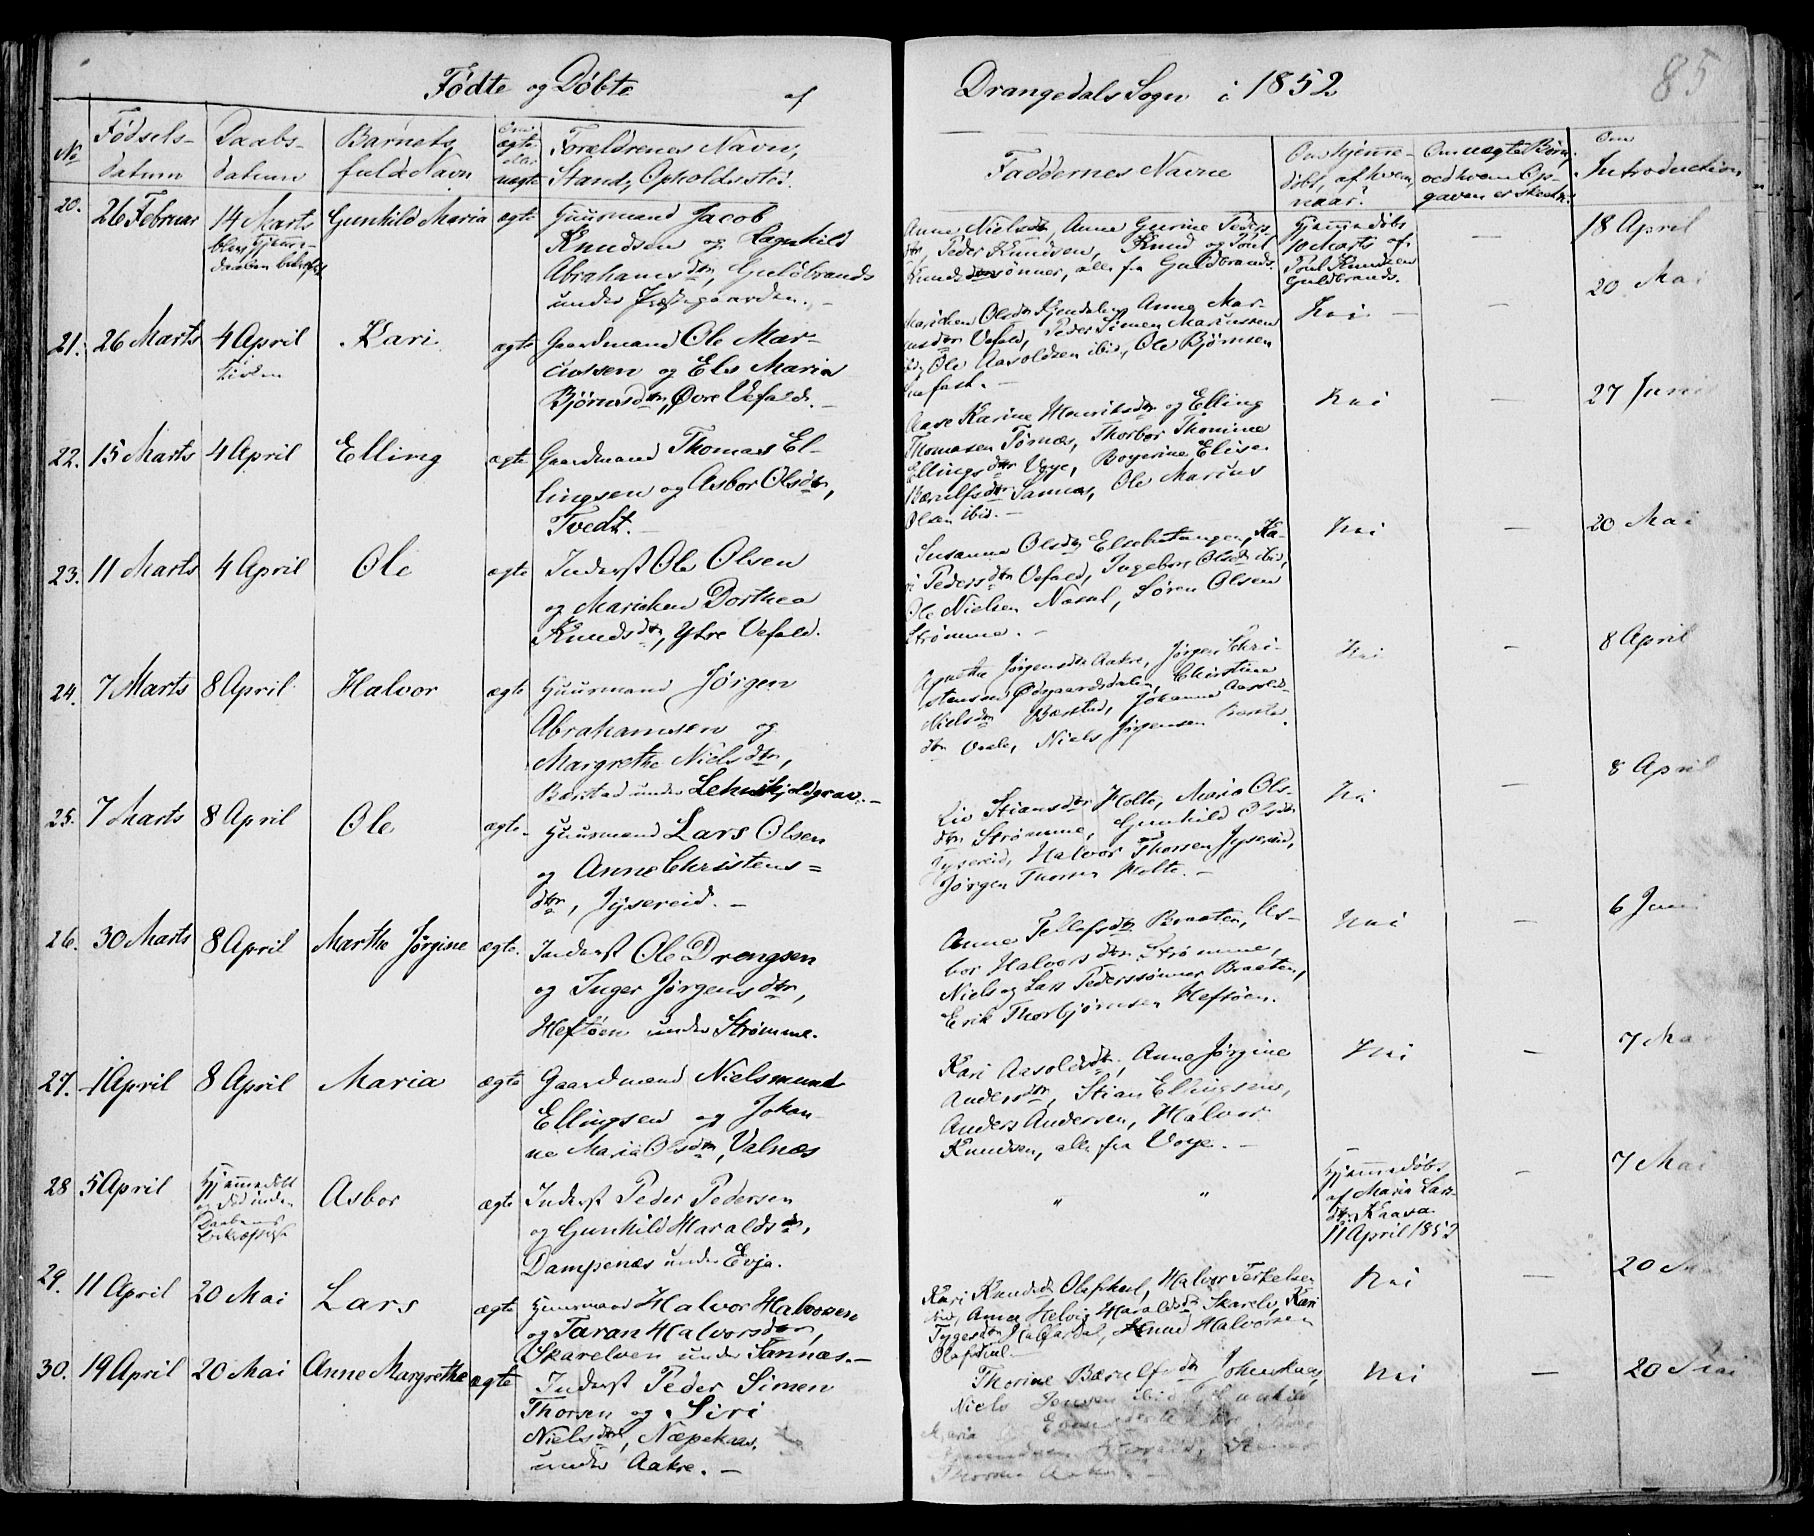 Fødte og Døbte af Drangedals Sogn i 1852
85
No
Fødsels-
Datum
Daabs-
Datum
Barnets
fulde Navn
Om
ægte
eller
uægte
Forældrenes Navn,
Stand, Opholdssted.
Faddernes Navne
Om hjemme-
døbt, af hvem,
naar?
Om uægte Børn,
ved hvem Op-
gaven er skeet.
Om
Introduction
20. 26 Februar 14 Marts
blev Hjemme-
daaben bekræftet
Gunhild Maria ægte
Huusmand Jacob
Knudsen og Ragnhild
Abrahamsdtr, Guldbrands
under Præstegaarden. -
Anne Nielsdtr, Anne Gurine Peders-
dtr, Peder Knudsen, Knud og Poul
Knudssønner, alle fra Guldbrands.
Hjemmedøbt
10 Marts af
Poul Knudsen
Guldbrands.
—
18 April
21. 26 Marts 4 April
Kari ægte
Gaardmand Ole Mar-
cussen og Els Maria
Bjørnsdtr, Øvre Vefald. -
Marichen Olsdtr Gjendalen, Anne Mar-
Vefald, Peder Simen Marcussen
Ole Aasoldsen ibid, Ole Bjørnsen
Nei -
—
20 Mai
22. 15 Marts 4 April Elling ægte
Gaardmand Thomas El-
lingsen og Asbor Olsdtr,
Tvedt. -
Aase Karine Henriksdtr og Elling
Thomasen Tørnæs, Thorbor Thomine
Ellingsdtr Voje, Boyerine Elise
Bærulfsdtr Sannæs, Ole Marius
Olsen ibid. -
Nei
—
27 Juni
23. 11 Marts 4 April Ole ægte
Inderst Ole Olsen
og Marichen Dorthea
Knudsdtr, Ytre Vefald.
Susanne Olsdtr Elsebutangen, Ka-
ri Pedersdtr Vefald, Ingebor Olsdtr ibid,
Ole Nielsen Næsul, Søren Olsen
Strømme. -
Nei
—
20 Mai
24. 7 Marts 8 April Halvor ægte
Huusmand Jørgen
Abrahamsen og
Margrethe Nielsdtr,
Barstad under Lehnskjoldgrav. -
Agnethe Jørgensdtr Aakre, Jørgen Chri-
stensen Ødegaardsdalen, Christine
Nielsdtr Barstad, Johanne Aasolds-
dtr Vaale, Niels Jørgensen
Nei
—
8 April
25. 7 Marts 8 April Ole ægte
Huusmand Lars Olsen
og Anne Christens=
dtr, Jysereid. -
Liv Stiansdtr Holte, Maria Ols-
dtr Strømme, Gunhild Olsdtr
Jysereid, Halvor Thorsen Jysereid,
Jørgen Thorsen Holte. -
Nei
—
8 April
26. 30 Marts 8 April Marthe Jørgine ægte
Inderst Ole Drengsen
og Inger Jørgensdtr,
Heftøen under Strømme.
Anne Tellefsdtr Braaten, As-
bor Halvorsdtr Strømme,
Niels og Lars Pederssønner Braaten,
Erik Thorbjørnsen Heftøen.
Nei
—
6 Juni
27. 1 April 8 April Maria ægte
Gaardmand Nielsmund
Ellingsen og Johan-
ne Maria Olsdtr, Valnæs
Kari Aasoldsdtr, Anne Jørgine
Andersdtr, Stian Ellingsen,
Anders Andersen, Halvor
Knudsen, alle fra Voje. -
Nei
—
7 Mai
28 5 April
Hjemmedøbt
og død inden
Daabens
Bekræftelse
Asbor ægte
Inderst Peder Pedersen
og Gunhild Haraldsdtr,
Dampenæs under Evja.
" "
Hjemmedøbt
af Maria Lars-
dtr Kaasa
11 April 1852
—
7 Mai
29. 11 April 20 Mai Lars ægte
Huusmand Halvor Halvorsen
og Taran Halvorsdtr,
Skarelven under Sannæs. -
Kari Knudsdtr Olafskul, Halvor Terkelsen
ibid, Anne Helvig Haraldsdtr Skarelv, Kari
Tygesdtr, Knud Halvorsen
Olafskul -
Nei
—
20 Mai
30. 19 April 20 Mai Anne Margrethe ægte
Inderst Peder Simen
Thorsen og Siri
Nielsdtr, Næpekaas
under Aakre. -
Thorine Bærulfsdtr
Niels Jensen ibid, Gunhild
Maria
Thorsen
Nei
—
20 Mai